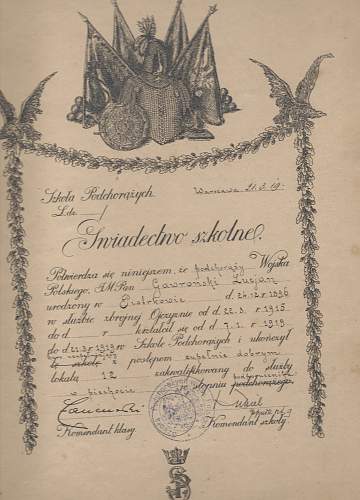 Szkoła Podchorążych.
Warszawa 21.3.19.
L.dz.
Świadectwo szkolne.
Potwierdza się niniejszem, że podchorąży Wojska
Polskiego, J.M. Pan Gawroński Lucjan
urodzony w Piotrkowie d. 24.12.r. 1896
w służbie zbrojnej Ojczyźnie od d 22.3. r 1915
do d r kształcił się od d 7.1. r 1919
do d 21.3 r 1919 w Szkole Podchorążych i ukończył
tę szkołę postępem zupełnie dobrym
lokatą 12 zakwalifikowany do służby
w piechocie w stopniu podchorążego.
Komendant klasy.
Komendant szkoły.